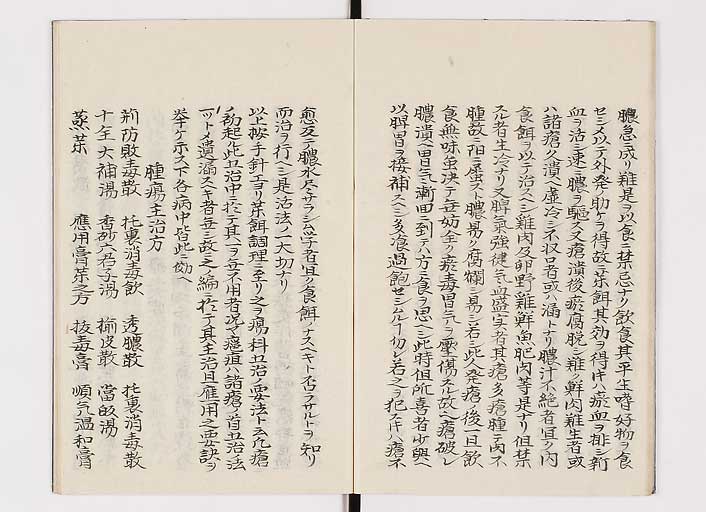 膿急ニ成リ難是ヲ以食ニ禁忌ナリ飲食其平生嗜好物ヲ食
セシメ以テ外発助ケヲ得故ニ薬餌其効ヲ得レハ瘀血ヲ排シ新
血ヲ活シ速ニ膿ヲ駆ス又瘡潰後瘀腐脱シ難ク鮮肉難生者或
ハ諸瘡久潰ヘ虚冷シ不収口者或ハ漏トナリ膿汁不絶者宜ク内
食餌ヲ以テ治スヘシ雞肉及卵野雞鮮魚肥肉等是ナリ但禁
スル者生冷ナリ又脾氣強健氣血盛実者其瘡多瘡腫テ内不
腫故ニ陽ニ虚スト膿易ク腐爛シ易シ若シ此人発瘡ノ後一旦飲
食無味虽决テ無妨全ク瘀毒胃氣ヲ壓傷スル故ヘ瘡破レ
膿潰ヘ胃氣漸回ニ到テハ方ニ食ヲ思ヘシ此時但所喜者少與ヘ
以脾胃ヲ接補スヘシ多飡過飽セシムルー勿レ若之ヲ犯ス片ハ瘡不
愈反テ膿水尽サラシム学者宜ク食餌ノナスヘキト否ラサルトヲ知リ
而治ヲ行ヘシ是治法ノ一大切ナリ
以上按手針ヨリ薬餌調理ニ至リ之ヲ瘍科立治ノ要法トス凡瘡
ノ初起ル此立治中ニ於テ其一ヲ立不用者况ヤ癌疽ハ諸瘡ノ首立治法
一ツトメ遺漏スヘキ者無シ故之ノ編ニ於テ其主治且應用之要訣ヲ
挙ケホス下各病中皆此ニ効ヘ
腫瘍主治方
荊防敗毒散 托裏消毒飲 透膿散 托裏消毒散
十全大補湯 香砂六君子湯 楡皮散 當飯湯
蒸茶 應用膏薬之方 抜毒膏 順氣温和膏